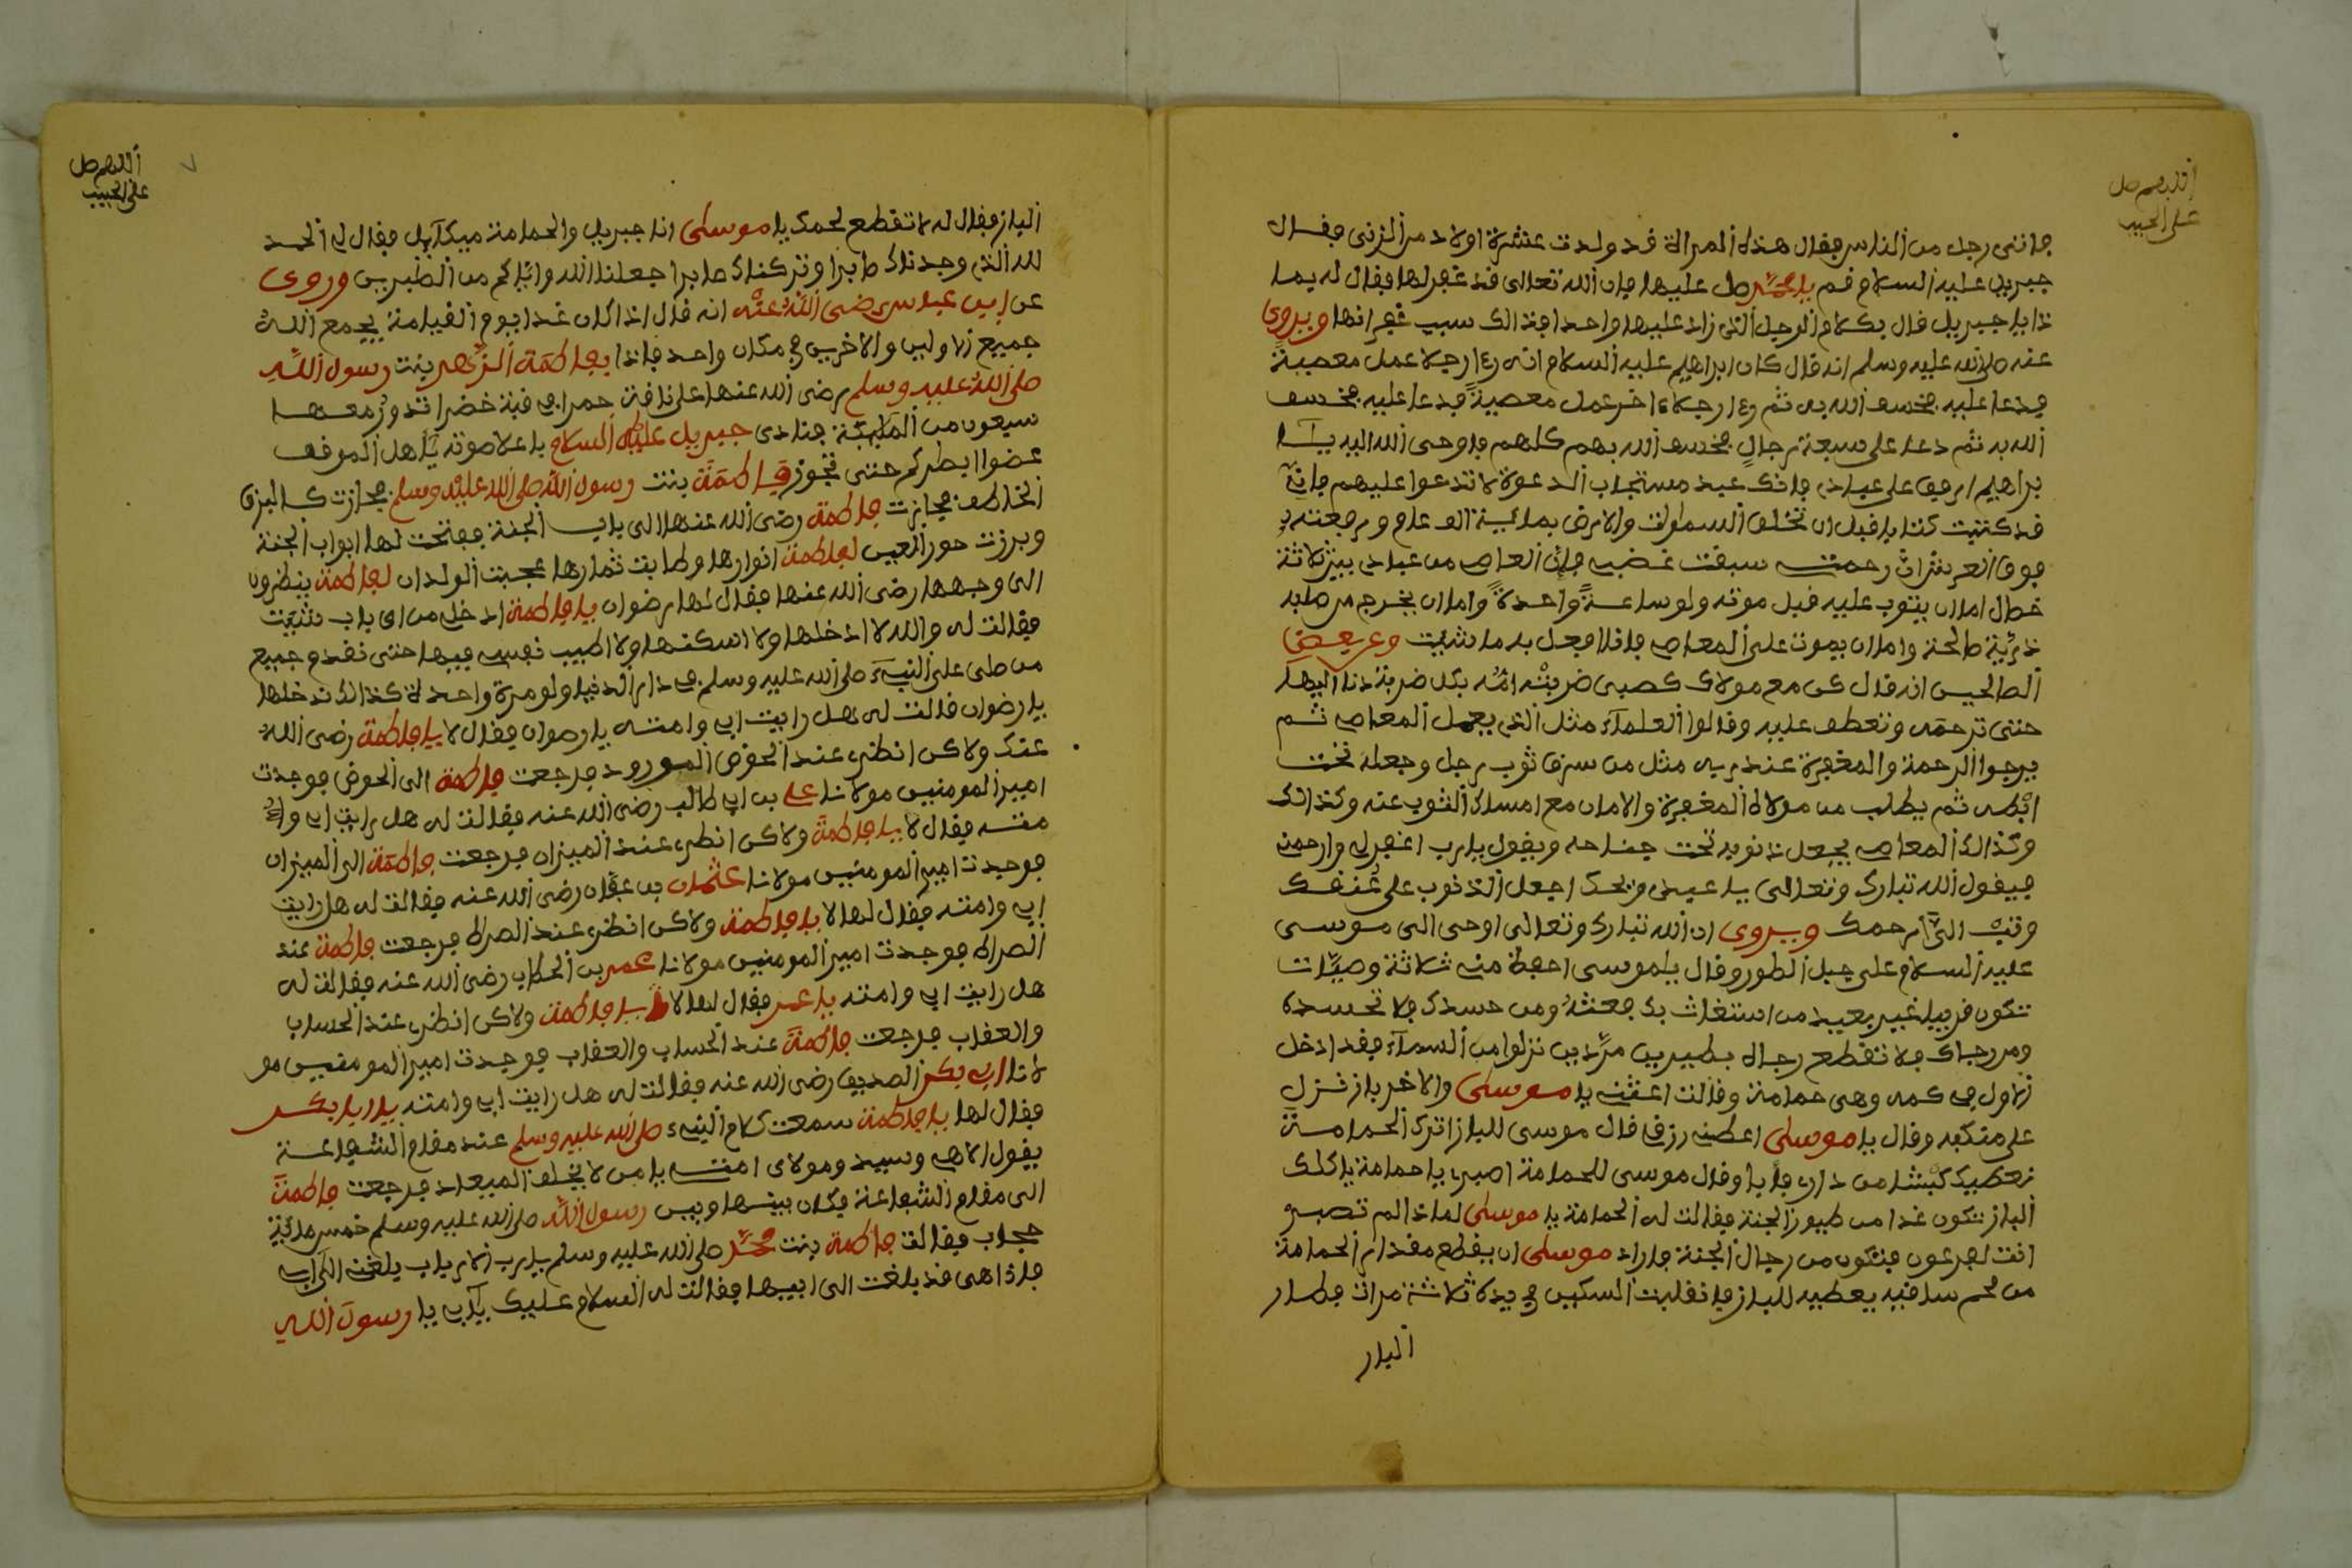 اللهم صل
على الحبيب
فانثنى رجل من الناس فقال هذه المراة قد ولدت عشرة اولاد من الزنى فقال
جبريل عليه السلام قم يا محمد صل عليها فان الله تعالى قد غفر لها فقال له بما
ذا يا جبريل قال بكلام الرجل الذي زاد عليها واحدا فذالك سبب غفرانها ويروى
عنه صلى الله عليه وسلم انه قال كان ابراهيم عليه السلام انه رءا رجلا عمل معصية
فدعا عليه فخسف الله به ثم رءا رجلا ءاخر عمل معصية فدعا عليه فخسف
الله به ثم دعا على سبعة رجال فخسف الله بهم كلهم فاوحى الله اليه يآ ا
براهيم ارفق على عبادي فانك عبد مستجاب الدعوة لا تدعوا عليهم فاني
قد كتبت كتابا قبل ان نخلق السماوات والارض بمائية الف عام ورفعته
فوق العرش ان رحمتي سبقت غضبي فان العاصي من عبادي بين ثلاثة
خصال اما ان يتوب عليه قبل موته ولو ساعة واحدة واما ان يخرج من صلبه
ذرية صالحة واما ان يموت على المعاصي فانا افعل به ما شئت وعن بعض
الصالحين انه قال كن مع مولاك كصبي ضربته امه بكل ضربة دنا اليها
حتى ترحمه وتعطف عليه وقالوا العلمآء مثل الذي يعمل المعاصي ثم
يرجوا الرحمة والمغفرة عند ربه مثل من سرق ثوب رجل وجعله تحت
ابطه ثم يطلب من مولاه المغفرة والامان مع امساك الثوب عنه وكذالك
وكذالك المعاصي يجعل ذنوبه تحت جناحه ويقول يا رب اغفر لي وارحمني
فيقول الله تبارك وتعالى يا عبدي ويحك اجعل الذنوب على عنفك
وتب الي ارحمك ويروى ان الله تبارك وتعالى اوحى الى موسى
عليه السلام على جبل الطور وقال يا موسى احفظ مني ثلاثة وصيات
تكون قريبا غير بعيد من استغاث بك فعثه ومن حسدك فلا تحسده
ومن رجاك فلا تقطع رجاه بطيرين مرّدين نزلوا من السمآء فقد ادخل
الاول في كمه وهى حمامة وقالت اعتقني يا موسى والاخر باز فنزل
على منكبه وقال يا موسى اعطني رزقي قال موسى للباز اترك الحمامة
نعطيك كبشا من داري فابا وقال موسى للحمامة اصبري يا حمامة ياكلك
الباز تكون غدا من طيور الجنة فقالت له الحمامة يا موسى لماذا لم تصبر
انت لفرعون فتكون من رجال الجنة فاراد موسى ان يقطع مقدار الحمامة
من لحم ساقيه يعطيه للباز فانقلبت السكين في يده ثلاثة مرات فطار
الباز
اللهم صل
على الحبيب
٧
الباز فقال له لا تقطع لحمك يا موسى انا جبريل والحمامة ميكآيل فقال لي الحمد
لله الذي وجدناك صابرا وتركناك صابرا جعلنا الله واياكم من الصبرين وروى
عن ابن عباس رضى الله عنه انه قال اذا كان غدا يوم القيامة يجمع الله
جميع الاولين والاخرين في مكان واحد فاذا بفاطمة الزهر بنت رسول الله
صلى الله عليه وسلم رضى الله عنها على ناقة حمرا في قبة خضرا تدور معها
سبعون من الملائكة فنادى جبريل عليه السلام باعلا صوته يآ اهل الموقف
غضوا ابطركم حتى تجوز فاطمة بنت رسول الله صلى الله عليه وسلم فجازت كالبرق
الخاطف فجازت فاطمة رضى الله عنها الى باب الجنة ففتحت لها ابواب الجنة
وبرزت حور العين لفاطمة انوارها وطابت ثمارها عجبت الولدان لفاطمة ينظرون
الى وجهها رضى الله عنها فقال لها رضوان يا فاطمة ادخلي من اي باب شئت
فقالت له والله لا ادخلها ولا اسكنها ولا اطيب نفسي فيها حتى نقدم جميع
من صلى على النبيء صلى الله عليه وسلم في دار الدنيا ولو مرة واحدة كذالك ندخلها
يا رضوان قالت له هل رايت ابي وامته يا رضوان فقال لا يا فاطمة رضى الله
عنك ولاكن انظري عند الحوض المورود فرجعت فاطمة الى الحوض فوجدت
امير المومنين مولانا علي بن ابي طالب رضى الله عنه فقالت له هل رايت ابي وا
مته فقال لا يا فاطمة ولاكن انظري عند الميزان فرجعت فاطمة الى الميزان
فوجدت امير المومنين مولانا عثمان بن عفان رضى الله عنه فقالت له هل رايت
ابي وامته فقال لها لا يا فاطمة ولاكن انظري عند الصراط فرجعت فاطمة عند
الصراط فوجدت امير المومنين مولانا عمر بن الخطاب رضى الله عنه فقالت له
هل رايت ابي وامته يا عمر فقال لها لا يا فاطمة ولاكن انظري عند الحساب
والعقاب فرجعت فاطمة عند الحساب والعقاب فوجدت امير المومنين مو
لانا ابي بكر الصديق رضى الله عنه فقالت له هل رايت ابي وامته يا ابا بكر
فقال لها يا فاطمة سمعت كلام النبيء صلى الله عليه وسلم عند مقام الشفاعة
يقول الاهي وسيدي ومولاي امتي يا من لا يخلف الميعاد فرجعت فاطمة
الى مقام الشفاعة فكان بينها وبين رسول الله صلى الله عليه وسلم خمس مائية
حجاب فقالت فاطمة بنت محمد صلى الله عليه وسلم يا رب الارباب بلغني الى ابي
فاذا هى قد بلغت الى ابيها فقالت له السلام عليك يآ ابي يا رسول الله